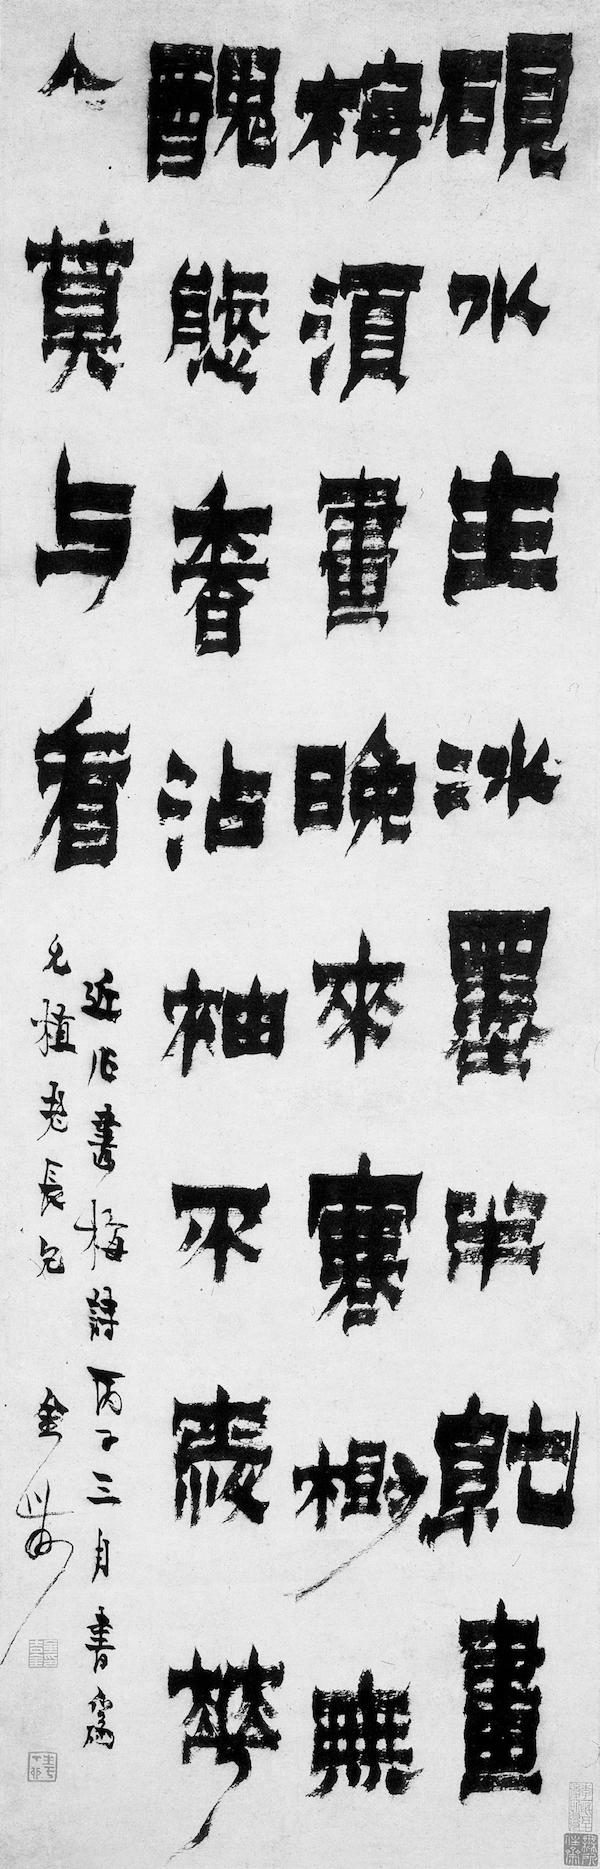 硯水生冰墨半乾畫
梅須畫晚來寒樹無
醜態香沾袖不愛華
人莫与看
近作畫梅詩丙子三月書寫
植老長兄 金農